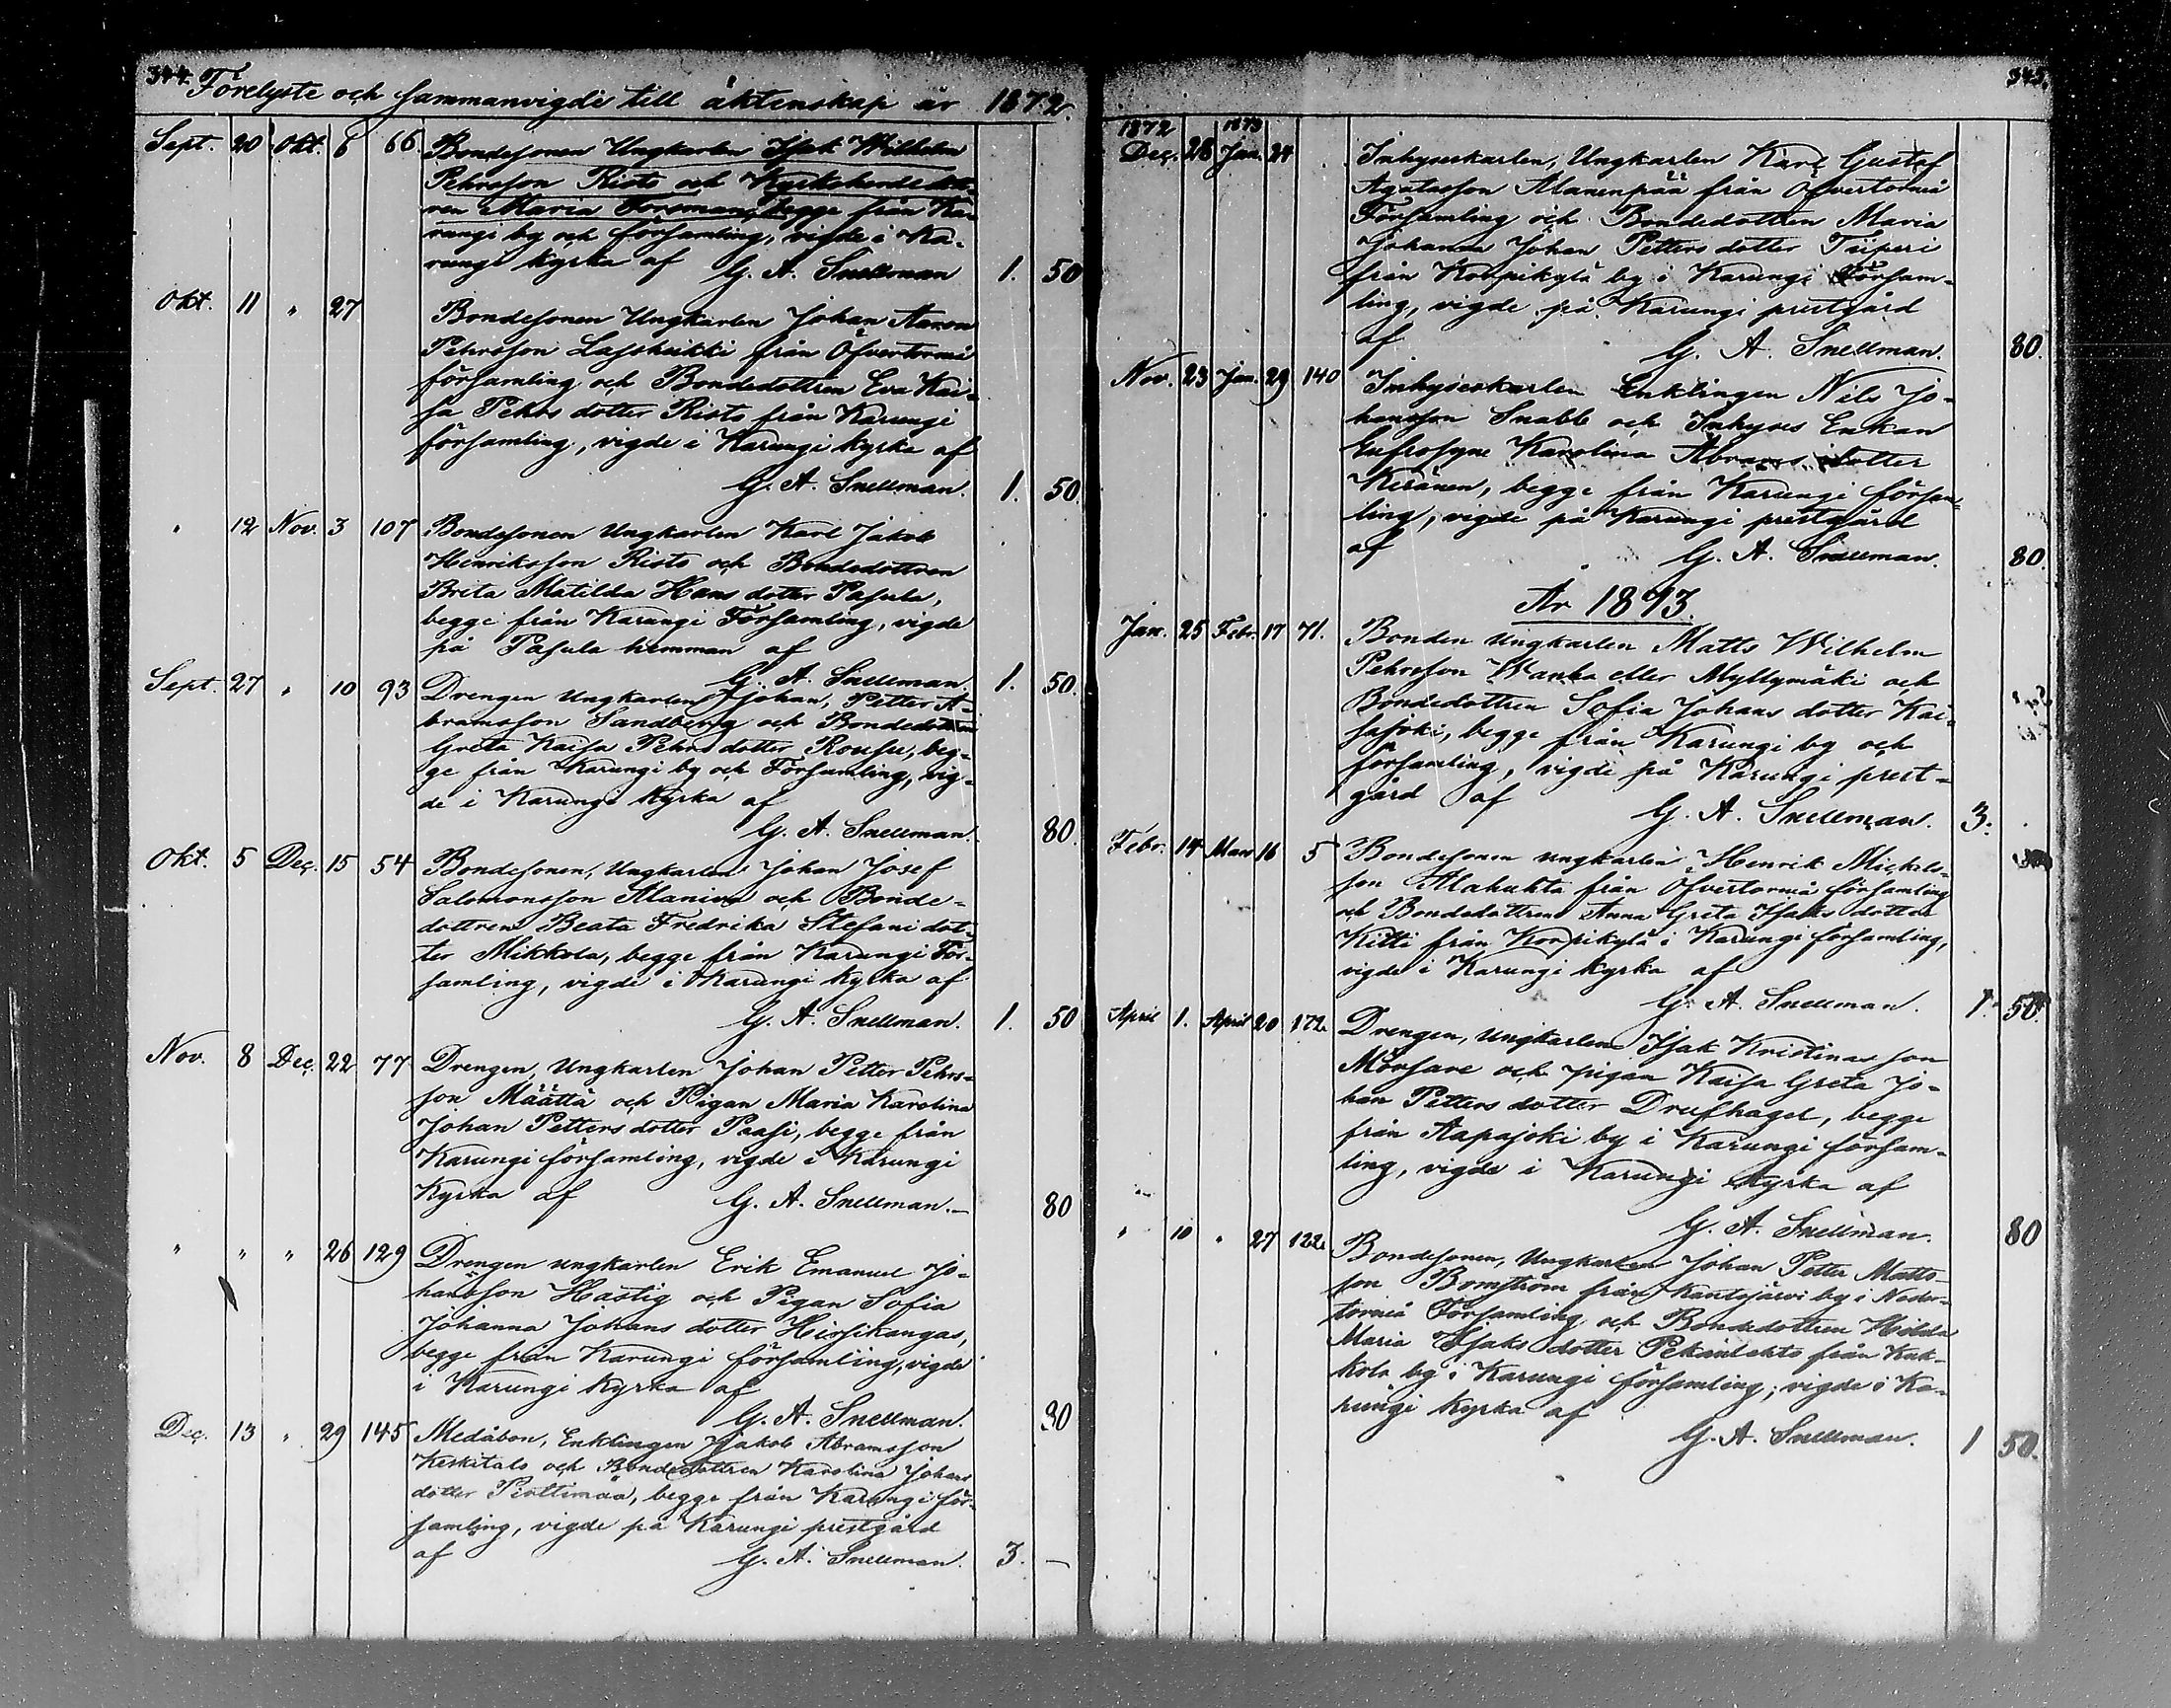 344. Förelyste och Sammanvigde till äktenskap år 1872.
Sept. 20 Okt. 6 66. Bondesonen Ungkarlen Isak Wilhelm
Pehrsson Risto och
ren Maria Forsman, begge från Ka-
rungi by och församling, vigde i Ka-
rungi kyrka af G. A. Snellman 1. 50
Okt. 11 " 27 Bondesonen Ungkarlen Johan Aaron
Pehrsson från Öfvertorneå
församling och Bondedottren Eva Kai-
sa Pehrs dotter Risto från Karungi
församling, vigde i Karungi kyrka af
G. A. Snellman. 1. 50
" 12 Nov. 3 107 Bondesonen Ungkarlen Karl Jakob
Henriksson Risto och Bondedottren
Brita Matilda Hans dotter Pasula,
begge från Karungi Församling, vigde
på Pasula hemman af
G. A. Snellman. 1. 50.
Sept. 27 " 10 93 Drengen Ungkarlen Johan Petter A-
bramsson Sandberg och Bondedottren
Greta Kaisa Pehrs dotter Rousu, beg-
ge från Karungi by och Församling, vig-
de i Karungi kyrka af
G. A. Snellman. 80.
Okt. 5 Dec. 15 54 Bondesonen, Ungkarlen Johan Josef
Salomonsson Alaniva och Bonde-
dottren Beata Fredrika Stefani dot-
ter Mikkola, begge från Karungi För-
samling, vigde i Karungi kyrka af
G. A. Snellman. 1. 50
Nov. 8 Dec. 22 77 Drengen, Ungkarlen Johan Petter Pehrs-
son Määttä och Pigan Maria Karolina
Johan Petters dotter Paasi, begge från
Karungi församling, vigde i Karungi
Kyrka af G. A. Snellman.— 80
" " " 26 129 Drengen ungkarlen Erik Emanuel Jo-
hansson Hastig och Pigan Sofia
Johanna Johans dotter Hirsikangas,
begge från Karungi församling, vigde
i Karungi kyrka af
G. A. Snellman. 80
Dec. 13 " 29 145 Medåbon, Enklingen Jakob Abramsson
Keskitalo och Bondedottren Karolina Johans
dotter Piottimaa, begge från Karungi för-
samling, vigde på Karungi prestgård
af G. A. Snellman. 3. —
345.
1872 1873
Dec. 26 Jan. 24 Inhyseskarlen, Ungkarlen Karl Gustaf
Agatasson Alanenpää från Öfvertorneå
Församling och Bondedottren Maria
Johanna Johan Petters dotter Tiiperi
från Korpikylä by i Karungi Försam-
ling, vigde på Karungi prestgård
af G. A. Snellman. 80.
Nov. 23 Jan. 29 140 Inhyseskarlen Enklingen Nils Jo-
hansson Snabb och Inhyses Enkan
Eufrosyne Karolina Abrams dotter
Keränen, begge från Karungi försam-
ling, vigde på Karungi prestgård
af G. A. Snellman. 80.
År 1873.
Jan. 25 Febr. 17 71. Bonden ungkarlen Matts Wilhelm
Pehrsson Wanha eller Myllymäki och
Bondedottren Sofia Johans dotter Kai-
sajoki, begge från Karungi by och
församling, vigde på Karungi prest-
gård af G. A. Snellman. 3.
Febr. 14 Mars 16 5 Bondesonen ungkarlen Henrik Mickels-
son Alahuhta från Öfvertorneå församling
och Bondedottren Anna Greta Isaks dotter
Kitti från Korpikylä i Karungi församling,
vigde i Karungi kyrka af
G. A. Snellman. 1. 50.
April 1. April 20 172. Drengen, ungkarlen Isak Kristinas son
Mörsare och pigan Kaisa Greta Jo-
han Petters dotter Drufhagel, begge
från Aapajoki by i Karungi försam-
ling, vigde i Karungi kyrka af
G. A. Snellman. 80
" 10 " 27 122. Bondesonen, Ungkarlen Johan Petter Matts-
son Bomström från Kantojärvi by i Neder-
torneå Församling och Bondedottren Hilda
Maria Isaks dotter från Kuk-
kola by i Karungi församling, vigde i Ka-
rungi kyrka af
G. A. Snellman. 1 50.